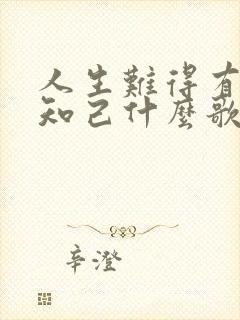 人生難得有
知己什麼歌
辛澄